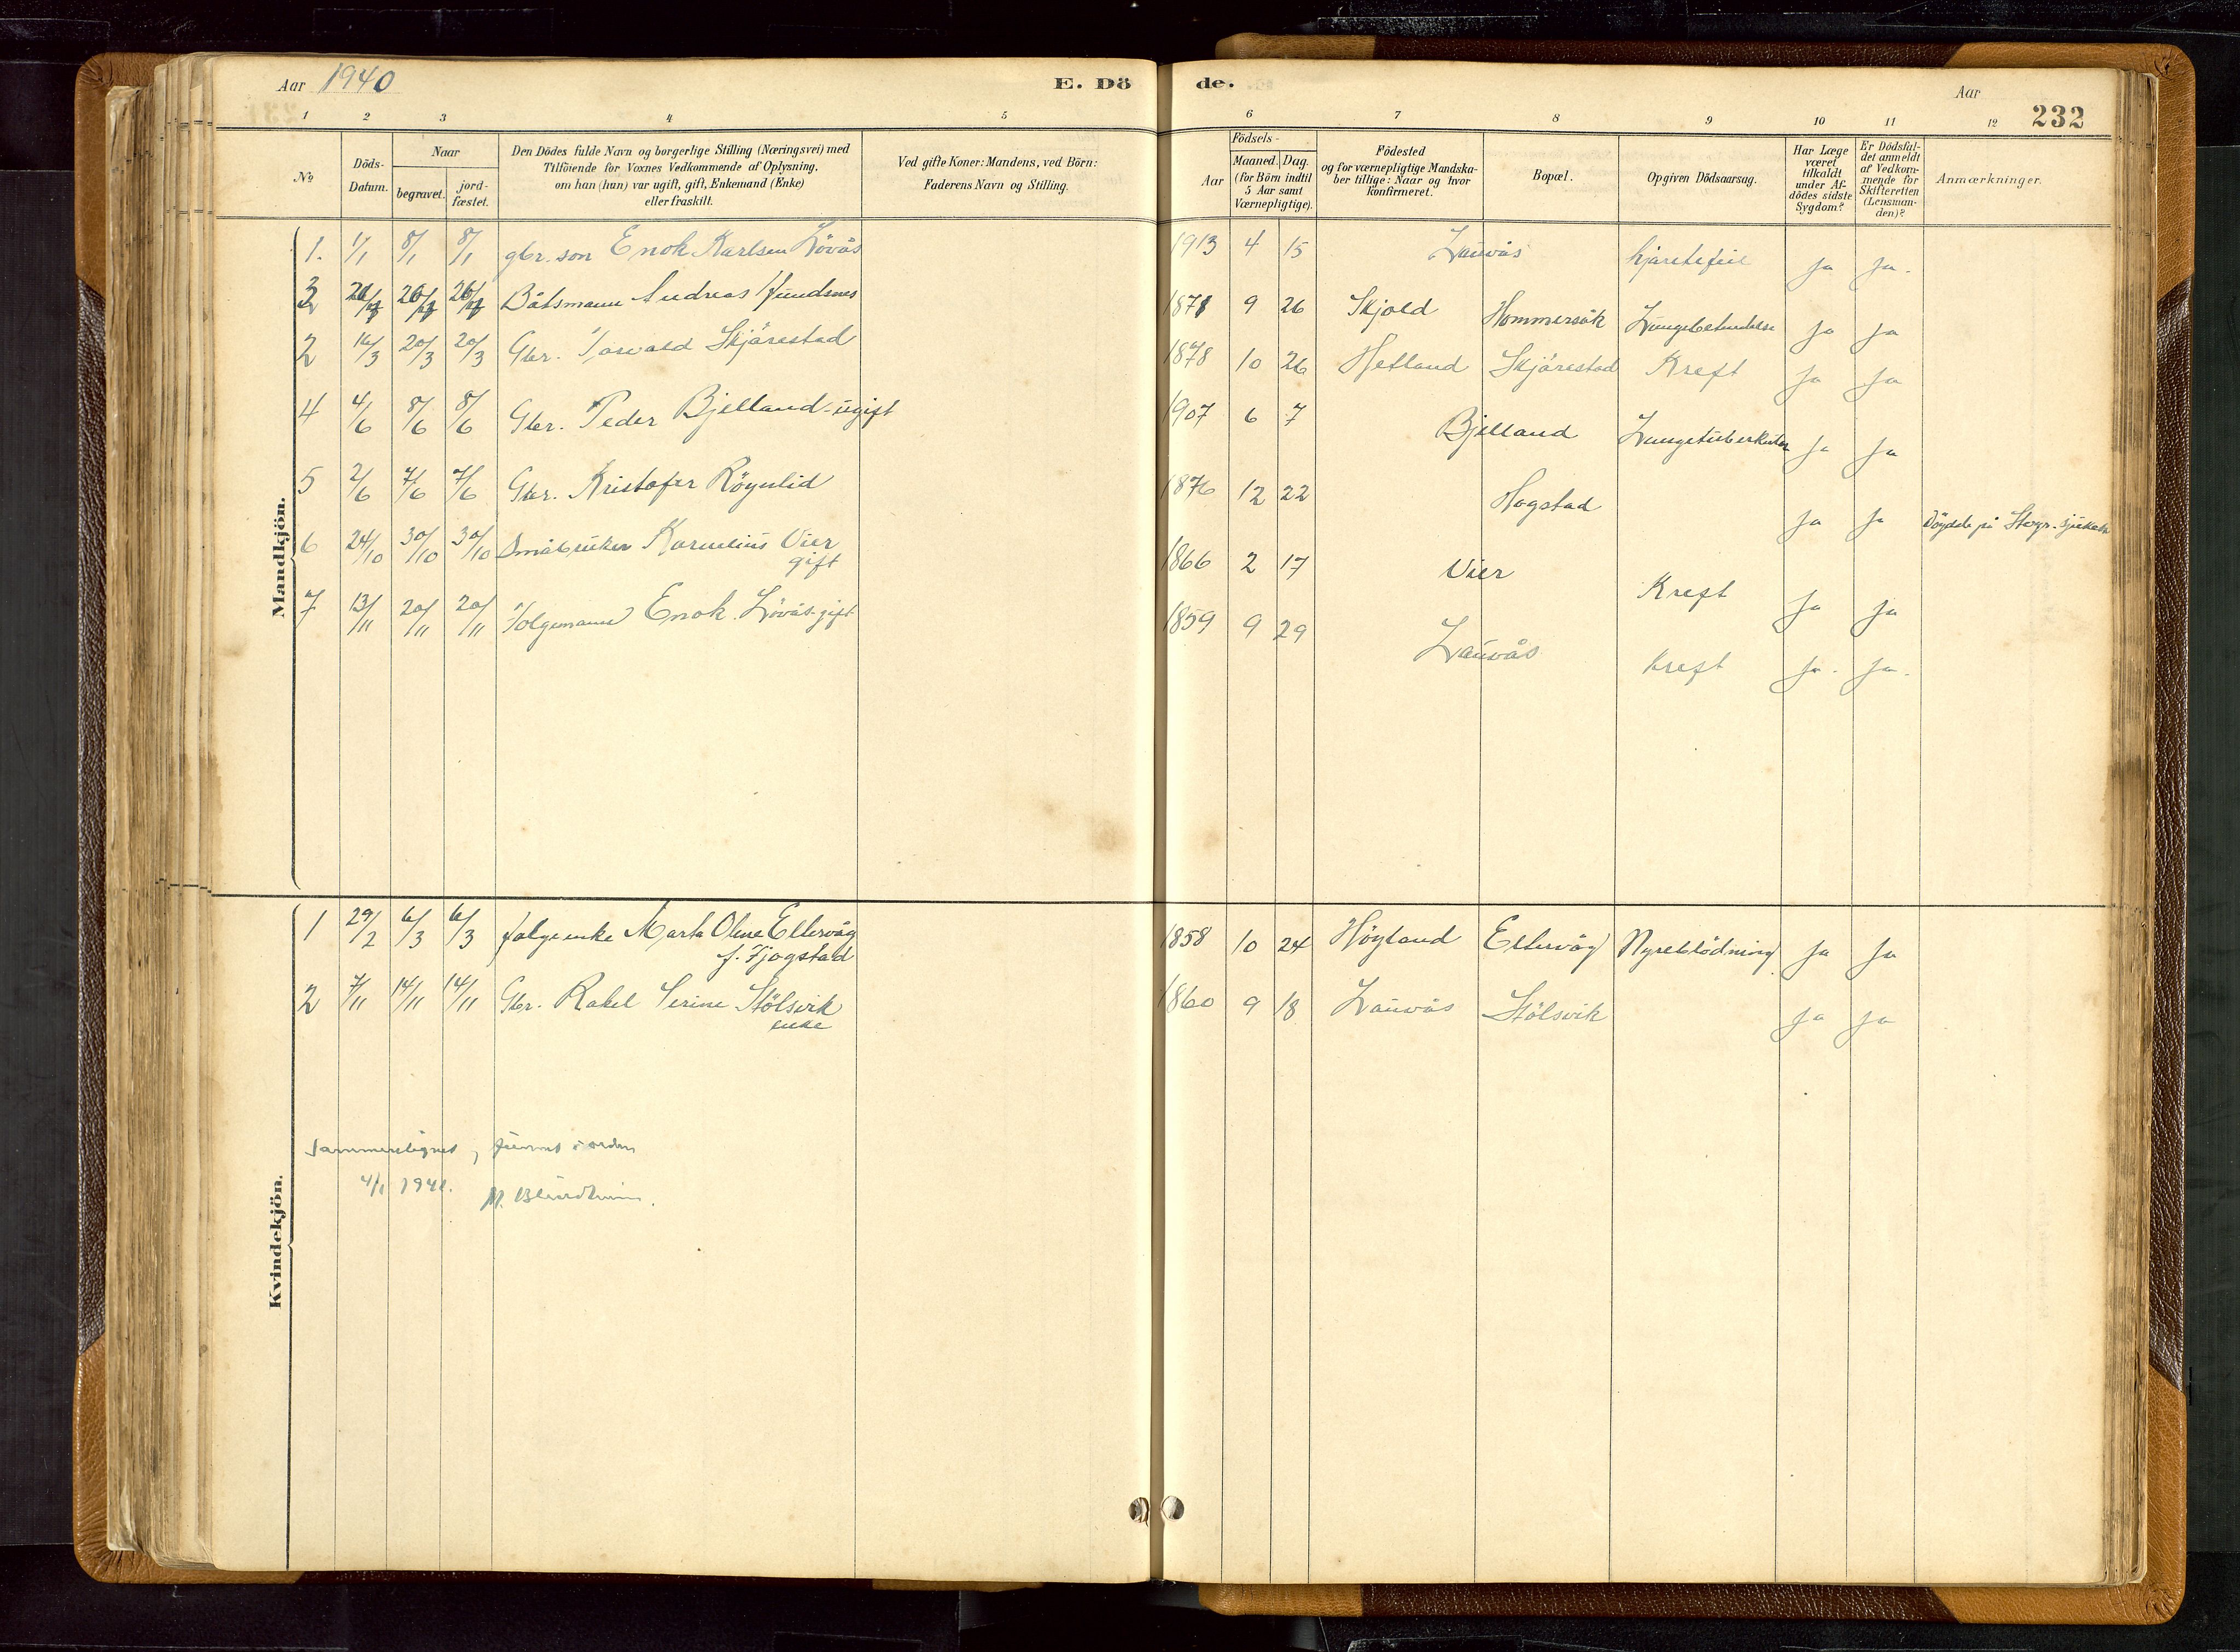 Aar 1940 E. Dö de. Aar 232
1 2 3 4 5 6 7 8 9 10 11 12
№ Döds-Datum. Naar begravet. jord-fæstet. Den Dödes fulde Navn og borgerlige Stilling (Næringsvei) med Tilföiende for Voxnes Vedkommende af Oplysning, om han (hun) var ugift, gift, Enkemand (Enke) eller fraskilt. Ved gifte Koner: Mandens, ved Börn: Faderens Navn og Stilling. Aar Födsels- Maaned. Dag. (for Börn indtil 5 Aar samt Værnepligtige). Födested og for værnepligtige Mandska-ber tillige: Naar og hvor Konfirmeret. Bopæl. Opgiven Dödsaarsag. Har Læge været tilkaldt under Af-dödes sidste Sygdom? Er Dödsfal-det anmeldt af Vedkom-mende for Skifteretten (Lensman-den)? Anmærkninger.
Mandkjön.
1. 1/1 8/1 8/1 gbr. son Enok Karlsen Lövås 1913 4 15 Lauvås hjartefeil ja ja.
3 Båtsmann Andreas Hundsnes 1871 9 26 Skjold Hommersåk Lungebetendelse ja ja
2 16/3 20/3 20/3 Gbr. Torvald Skjörestad 1878 10 26 Hetland Skjörestad Kreft ja ja
4 4/6 8/6 8/6 Gbr. Peder Bjelland - ugift 1907 6 7 Bjelland Lungetuberkulose ja ja
5 2/6 7/6 7/6 Gbr. Kristofer Röynlid 1876 12 22 Hogstad ja ja Döydde på Stvgr. sjukehus
6 24/10 30/10 30/10 Småbruker Kornelius Vier 1866 2 17 Vier Kreft ja ja
gift
7 13/11 20/11 20/11 Folgemann Enok Lövås - gift 1859 9 29 Lauvås kreft ja. ja.
Kvindekjön.
1 29/2 6/3 6/3 folgeenke Marta Oline Eltervåg 1858 10 24 Höyland Eltervåg Nyreblödning ja ja
f. Fjogstad
2 7/11 14/11 14/11 Gbr. Rakel Serine Stölsvik 1860 9 18 Lauvås Stölsvik ja ja
enke
Sammenlignet, finnes i orden
4/1 1941.